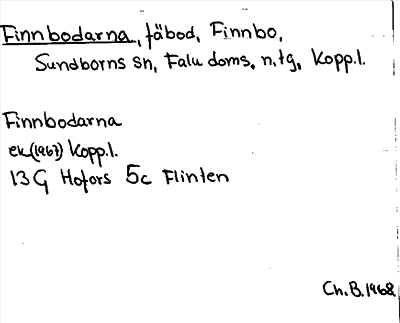 Finnbodarna, fäbod, Finnbo,
Sundborns sn, Falu doms. n. tg, Kopp. l.
Finnbodarna
ek (1967) Kopp. l.
13 G Hofors 5c Flinten
Ch. B. 1968